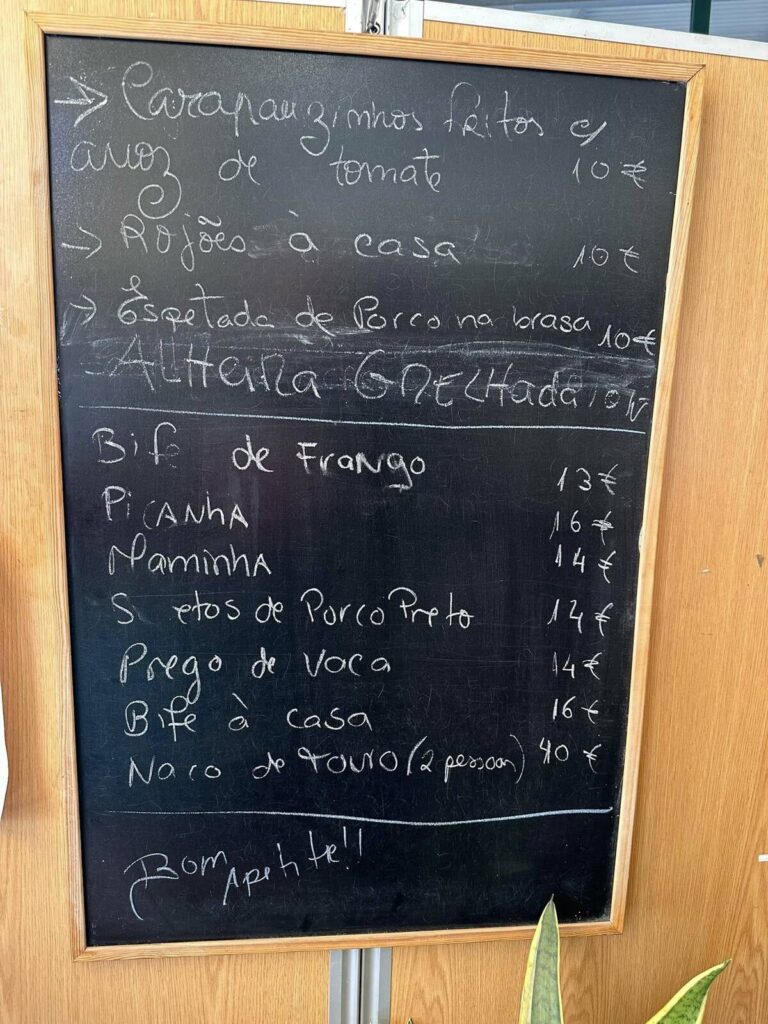 → Carapauzinhos fritos c/
arroz de tomate 10€
→ Rojões à casa 10€
→ Espetada de Porco na brasa 10€
Alheira GRELHada 10€
Bife de Frango 13€
PICANHA 16€
Maminha 14€
S etos de Porco Preto 14€
Prego de Vaca 14€
Bife à casa 16€
Naco de touro (2 pessoas) 40€
Bom Apetite!!